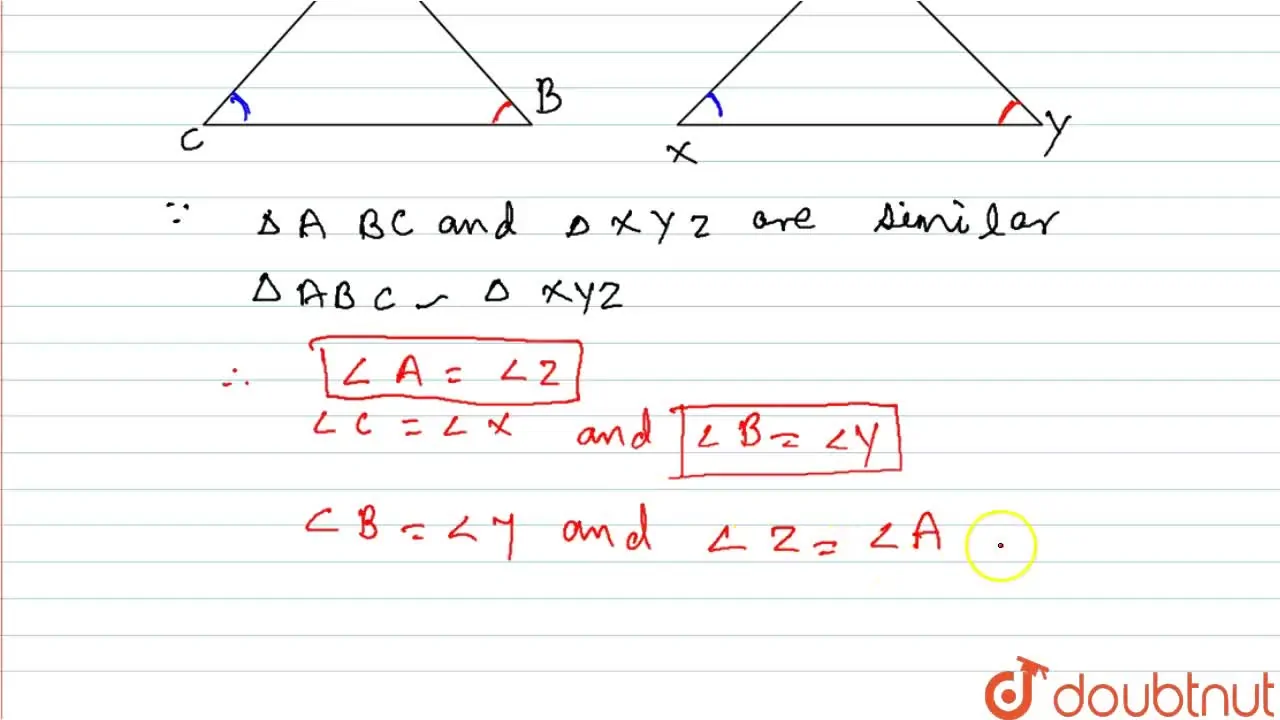 B
C
X
Y
∵ Δ A BC and Δ X Y Z are similar
Δ A B C ~ Δ X Y Z
∴ ∠ A = ∠ Z
∠ C = ∠ X and ∠ B = ∠ Y
∠ B = ∠ Y and ∠ Z = ∠ A
doubtnut